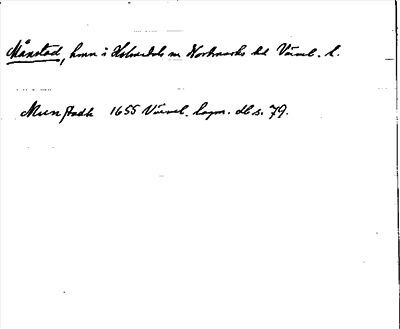 Månstad, hmn i Holmedals sn Nordmarks hd Värml. l.
Munstadh 1655 Värml. lagm. db s. 79.